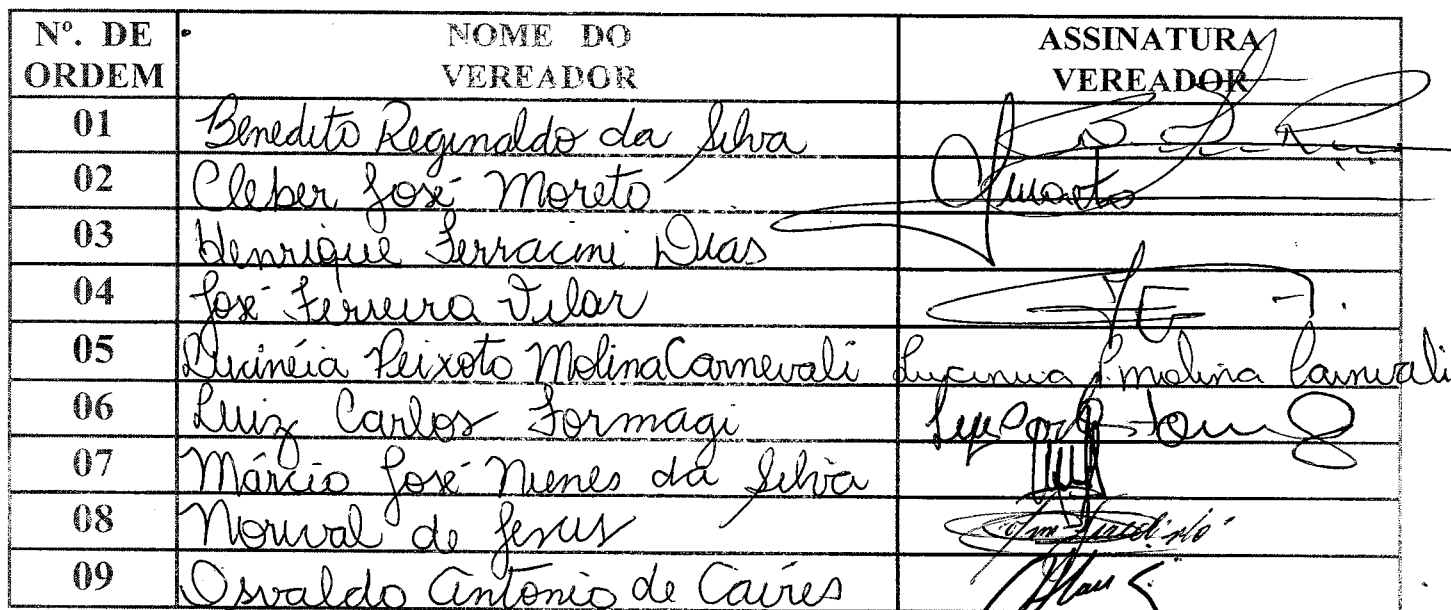 Nº. DE ORDEM NOME DO VEREADOR ASSINATURA VEREADOR
01 Benedito Reginaldo da Silva
02 Cleber José Moreto
03 Henrique Ferracini Dias
04 José Ferreira Vilar
05 Lucinéia Peixoto Molina Carnevali Lucineia P. Molina Carnevali
06 Luiz Carlos Formagi
07 Márcio José Nunes da Silva
08 Norival de Jesus
09 Osvaldo Antonio de Caires